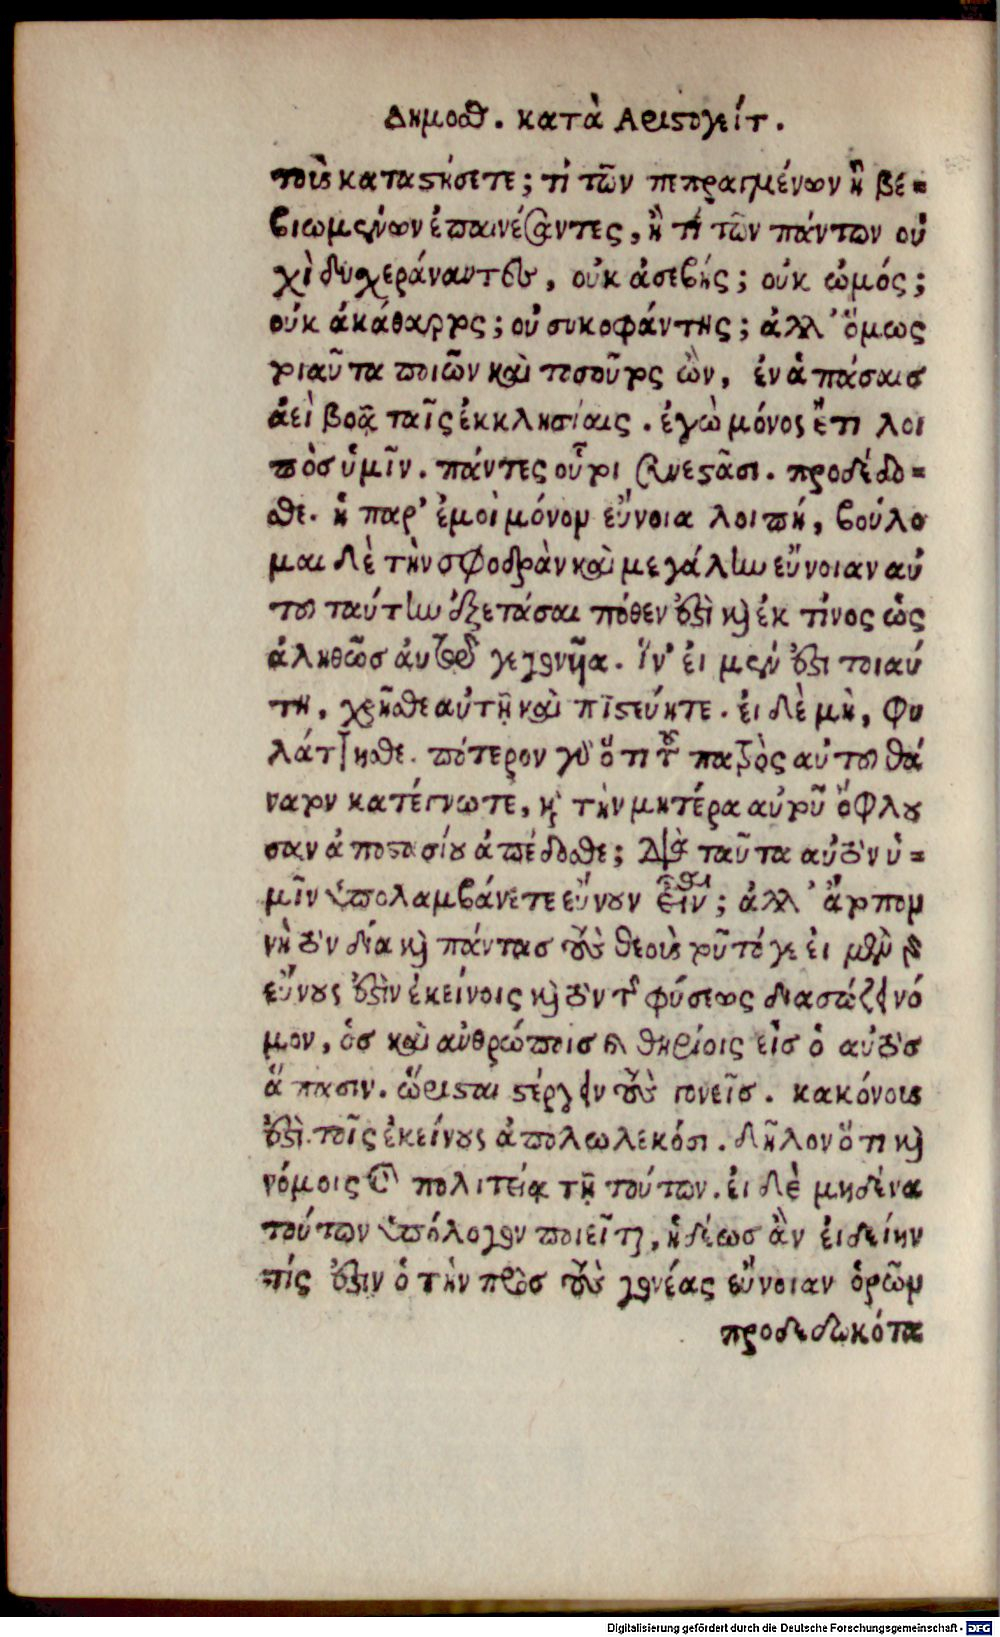 Δημοσθ. κατὰ Αριστογείτ.
τοὺς καταστήσετε; τί τῶν πεπραγμένων ἢ βέ-
βιωμένων ἐπαινέσαντες, ἢ τί τῶν πάντων οὐ
χὶ δυχεράναντες, οὐκ ἀσεβής; οὐκ ὠμός;
οὐκ ἀκάθαρτος; οὐ συκοφάντης; ἀλλ' ὅμως
τοιαῦτα ποιῶν καὶ τοσοῦτος ὢν, ἐν ἁπάσαισ
ἀεὶ βοᾷ ταῖς ἐκκλησίαις. ἐγὼ μόνος ἔτι λοι
πὸσ ὑμῖν. πάντες οὗτοι συνεστᾶσι. προδέδο-
σθε. ἡ παρ' ἐμοὶ μόνον εὔνοια λοιπή, βούλο
μαι δὲ τὴν σφοδρὰν καὶ μεγάλην εὔνοιαν αὐ
τοῦ ταύτην ἐξετάσαι πόθεν ἐστὶ καὶ ἐκ τίνος ὡς
ἀληθῶσ αὐτοῦ γεγενῆα. ἵν' εἰ μὲν ἐστι τοιαύ
τη, χρῆσθε αὐτῇ καὶ πιστεύητε. εἰ δὲ μὴ, φυ
λάττησθε. πότερον γὰρ ὅτι τοῦ πατρὸς αὐτοῦ θά
νατον κατέγνωτε, καὶ τὴν μητέρα αὐτοῦ ὄφλου
σαν ἀποστασίου ἀπέδοσθε; διὰ ταῦτα αὐτὸν ὑ-
μῖν ὑπολαμβάνετε εὔνουν εἶναι; ἀλλ' ἄτοπον
νὴ τὸν δία καὶ πάντασ τοὺς θεοὺς τοῦτό γε εἰ μὲν γὰρ
εὔνους ἐστὶν ἐκείνοις καὶ τὸν τῆς φύσεως διασώζει νό
μον, ὁσ καὶ ἀνθρώποισ καὶ θηρίοις εἷσ ὁ αὐτὸσ
ἅπασιν. ὥρισται στέργειν τοὺς γονεῖσ. κακόνους
ἐστὶ τοῖς ἐκείνους ἀπολωλεκόσι. δῆλον ὅτι καὶ
νόμοις καὶ πολιτείᾳ τῇ τούτων. εἰ δὲ μηδένα
τούτων ὑπόλογον ποιεῖται, ἡδέωσ ἂν εἰδείην
τίς ἐστιν ὁ τὴν πρὸσ τοὺς γονέας εὔνοιαν ὁρῶν
προδεδωκότα
Digitalisierung gefördert durch die Deutsche Forschungsgemeinschaft - DFG